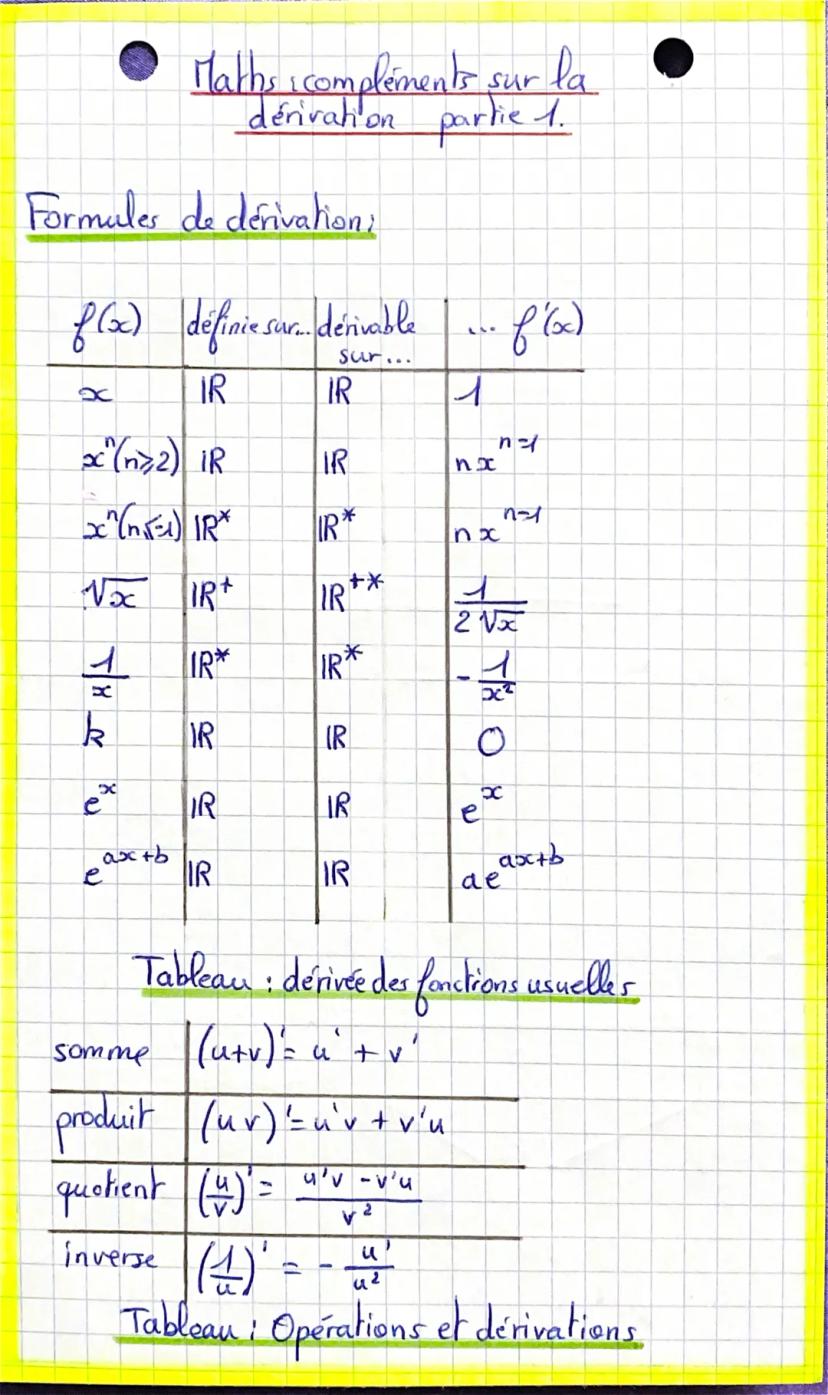 Maths : compléments sur la
dérivation partie 1.
Formules de dérivation :
f(x) | définie sur... | dérivable sur... | ... f'(x)
x | ℝ | ℝ | 1
xⁿ (n⩾2) | ℝ | ℝ | nxⁿ⁻¹
xⁿ (n⩽-1) | ℝ* | ℝ* | nxⁿ⁻¹
√x | ℝ⁺ | ℝ⁺* | 1/(2√x)
1/x | ℝ* | ℝ* | -1/x²
k | ℝ | ℝ | 0
eˣ | ℝ | ℝ | eˣ
e^(ax+b) | ℝ | ℝ | ae^(ax+b)
Tableau : dérivée des fonctions usuelles
somme | (u+v)' = u' + v'
produit | (uv)' = u'v + v'u
quotient | (u/v)' = (u'v - v'u)/v²
inverse | (1/u)' = - u'/u²
Tableau : Opérations et dérivations